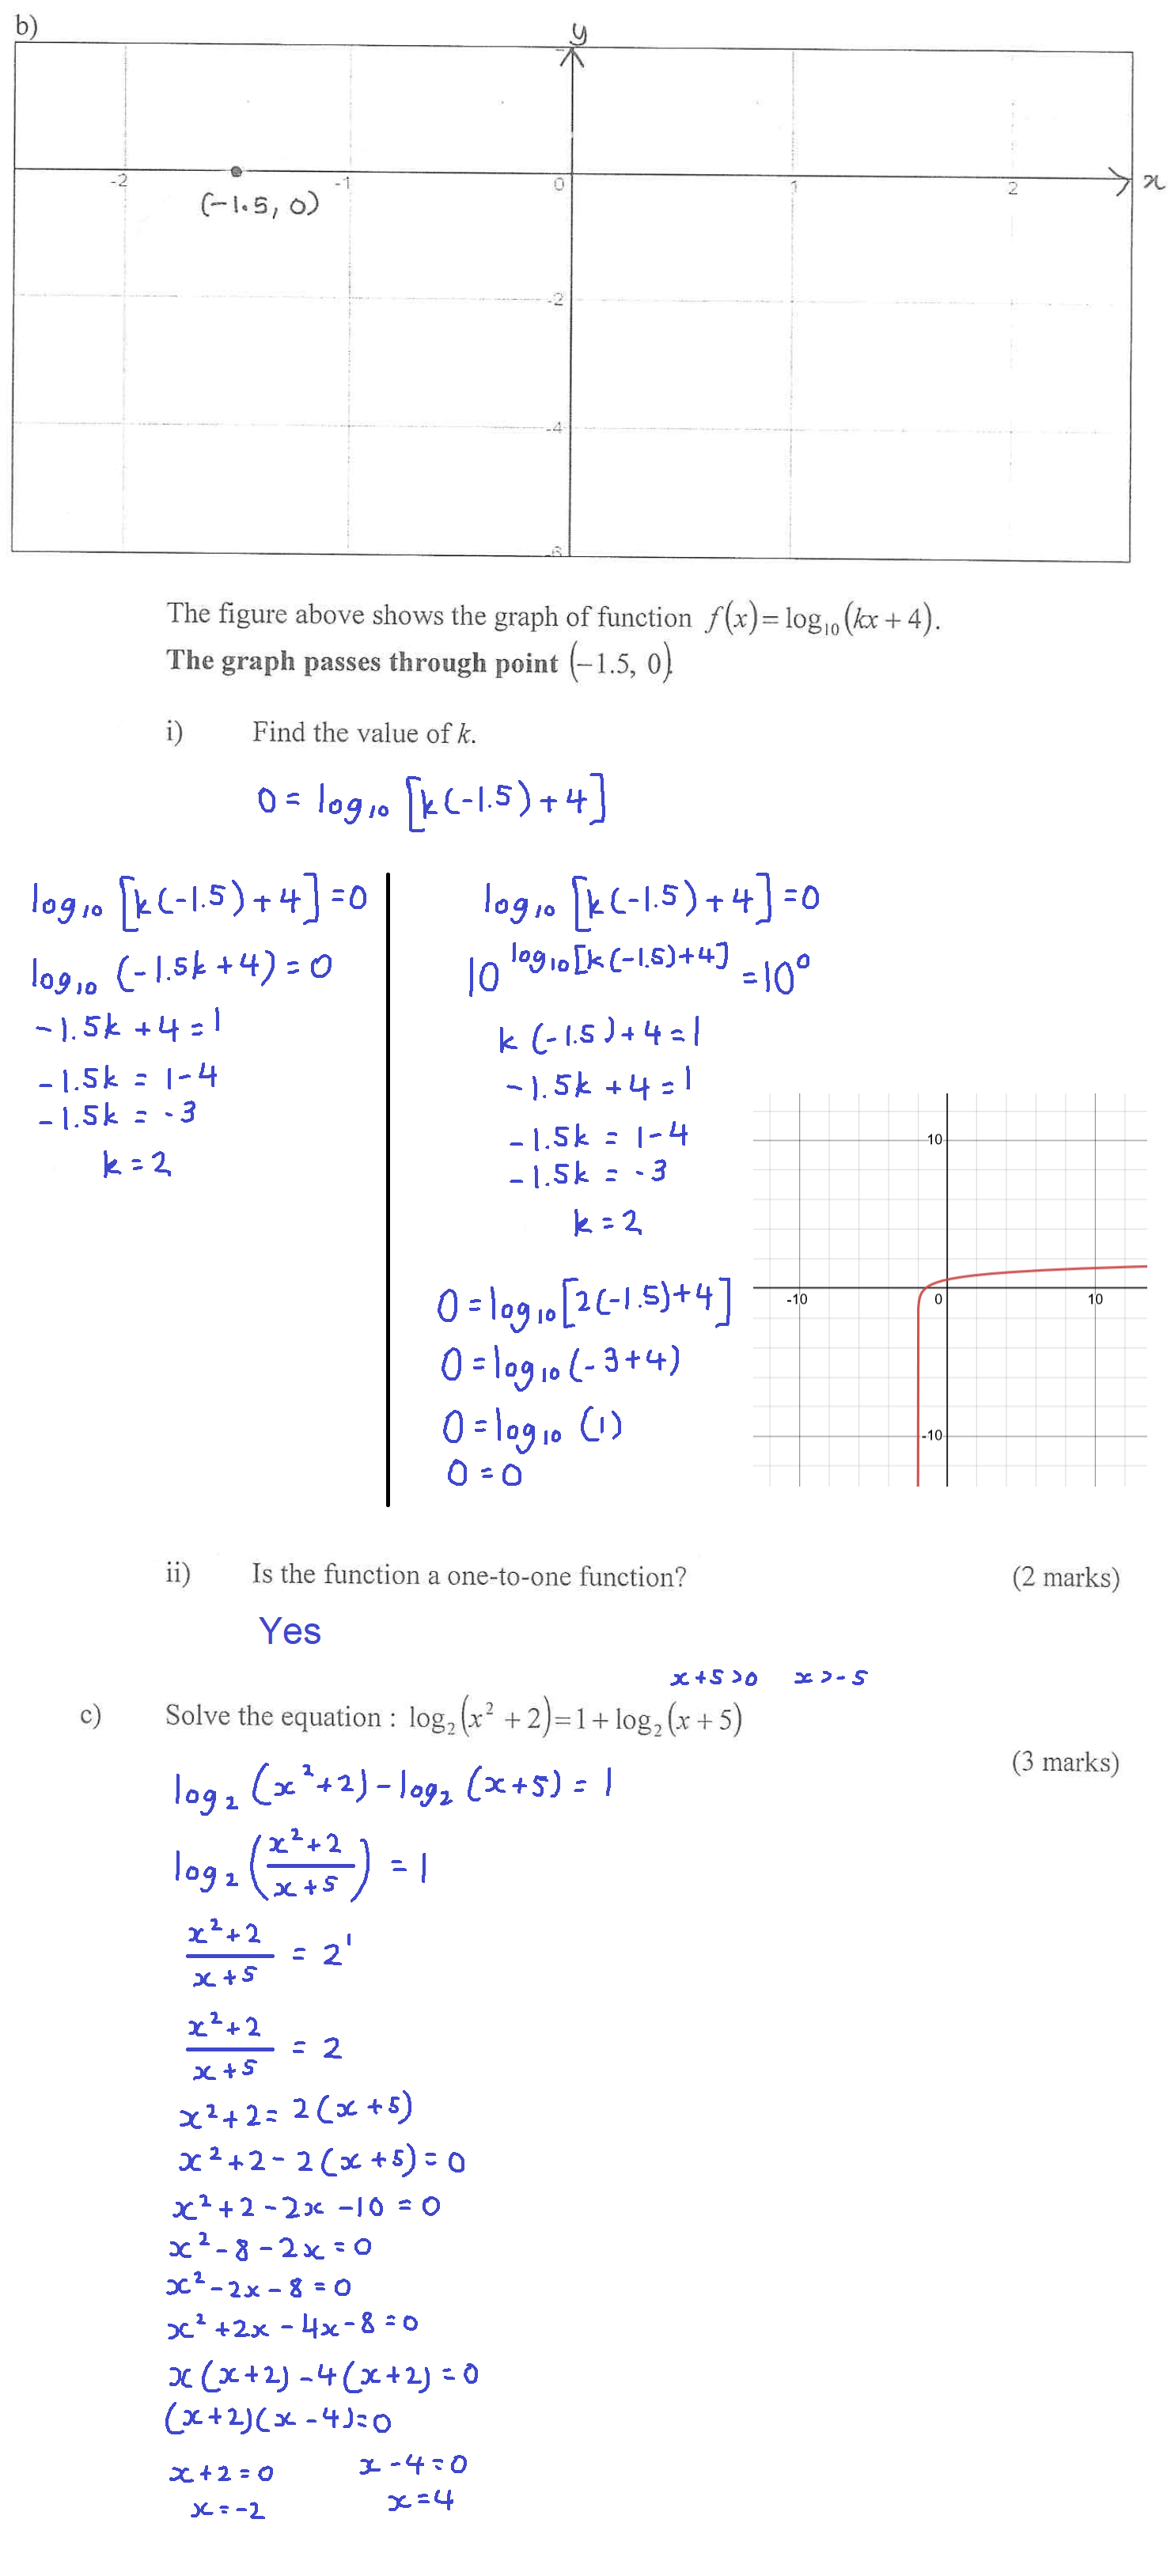 b)
y
-2 -1 0 1 2 x
(-1.5, 0)
-2
-4
-6
The figure above shows the graph of function f(x) = log₁₀(kx + 4).
The graph passes through point (-1.5, 0).
i) Find the value of k.
0 = log₁₀ [k(-1.5)+4]
log₁₀ [k(-1.5)+4] = 0
log₁₀ (-1.5k+4) = 0
-1.5k + 4 = 1
-1.5k = 1-4
-1.5k = -3
k = 2
log₁₀ [k(-1.5)+4] = 0
10^(log₁₀[k(-1.5)+4]) = 10⁰
k(-1.5)+4 = 1
-1.5k + 4 = 1
-1.5k = 1-4
-1.5k = -3
k = 2
0 = log₁₀[2(-1.5)+4]
0 = log₁₀(-3+4)
0 = log₁₀ (1)
0 = 0
10
-10 0 10
-10
ii) Is the function a one-to-one function? (2 marks)
Yes
x+5>0 x>-5
c) Solve the equation : log₂(x² + 2) = 1 + log₂(x + 5)
(3 marks)
log₂ (x²+2) - log₂ (x+5) = 1
log₂ ((x²+2)/(x+5)) = 1
(x²+2)/(x+5) = 2¹
(x²+2)/(x+5) = 2
x²+2 = 2(x+5)
x²+2-2(x+5) = 0
x²+2-2x-10 = 0
x²-8-2x = 0
x²-2x-8 = 0
x²+2x-4x-8 = 0
x(x+2)-4(x+2) = 0
(x+2)(x-4) = 0
x+2=0 x-4=0
x=-2 x=4